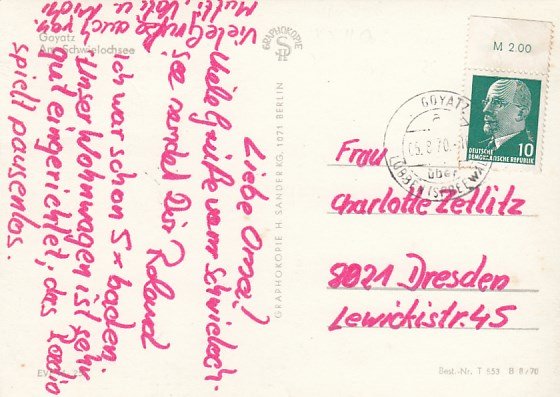 Goyatz
Am Schwielochsee
Liebe Oma!
Viele Grüße vom Schwieloch-
see sendet Dir Roland
Ich war schon 5x baden.
Unser Wohnwagen ist sehr
gut eingerichtet, das Radio
spielt pausenlos.
Viele Grüße auch von
Mutti, Vati u.
GRAPHOKOPIE
GRAPHOKOPIE H. SANDER KG, 1071 BERLIN
M 2.00
10
DEUTSCHE
DEMOKRATISCHE REPUBLIK
GOYATZ
a
über
LÜBBEN (SPREEWALD)
Frau
Charlotte Zetlitz
8021 Dresden
Lewickistr. 45
Best.-Nr. T 553 B 8/70